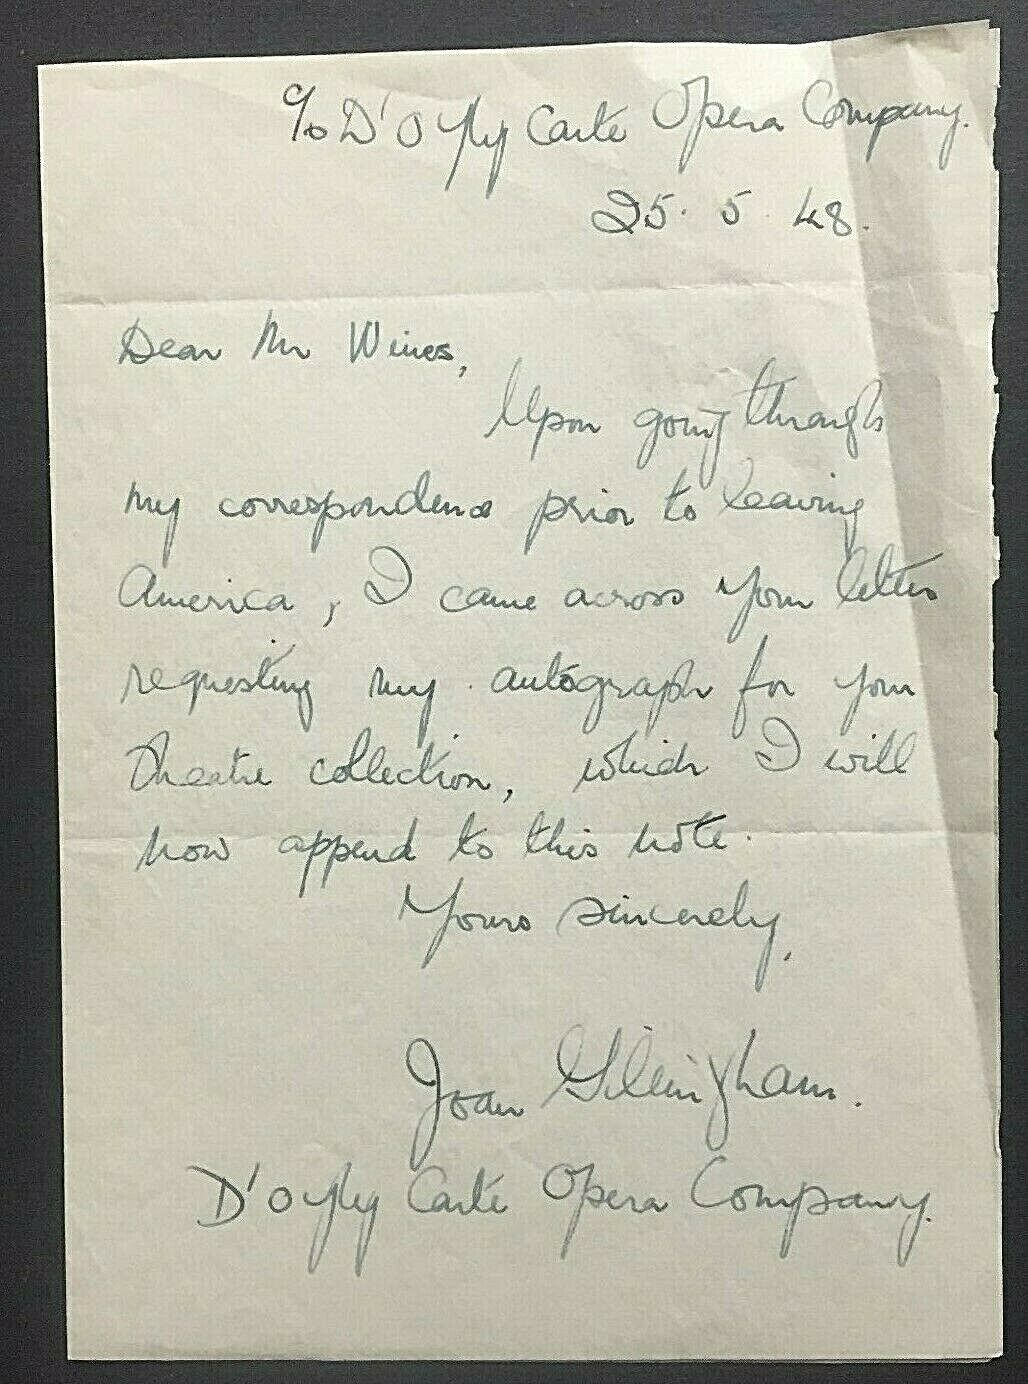 c/o D'Oyly Carte Opera Company.
25. 5. 48.
Dear Mr Wines,
Upon going through
my correspondence prior to leaving
America, I came across your letter
requesting my autograph for your
theatre collection, which I will
now append to this note.
Yours sincerely,
Joan Gillingham.
D'Oyly Carte Opera Company.